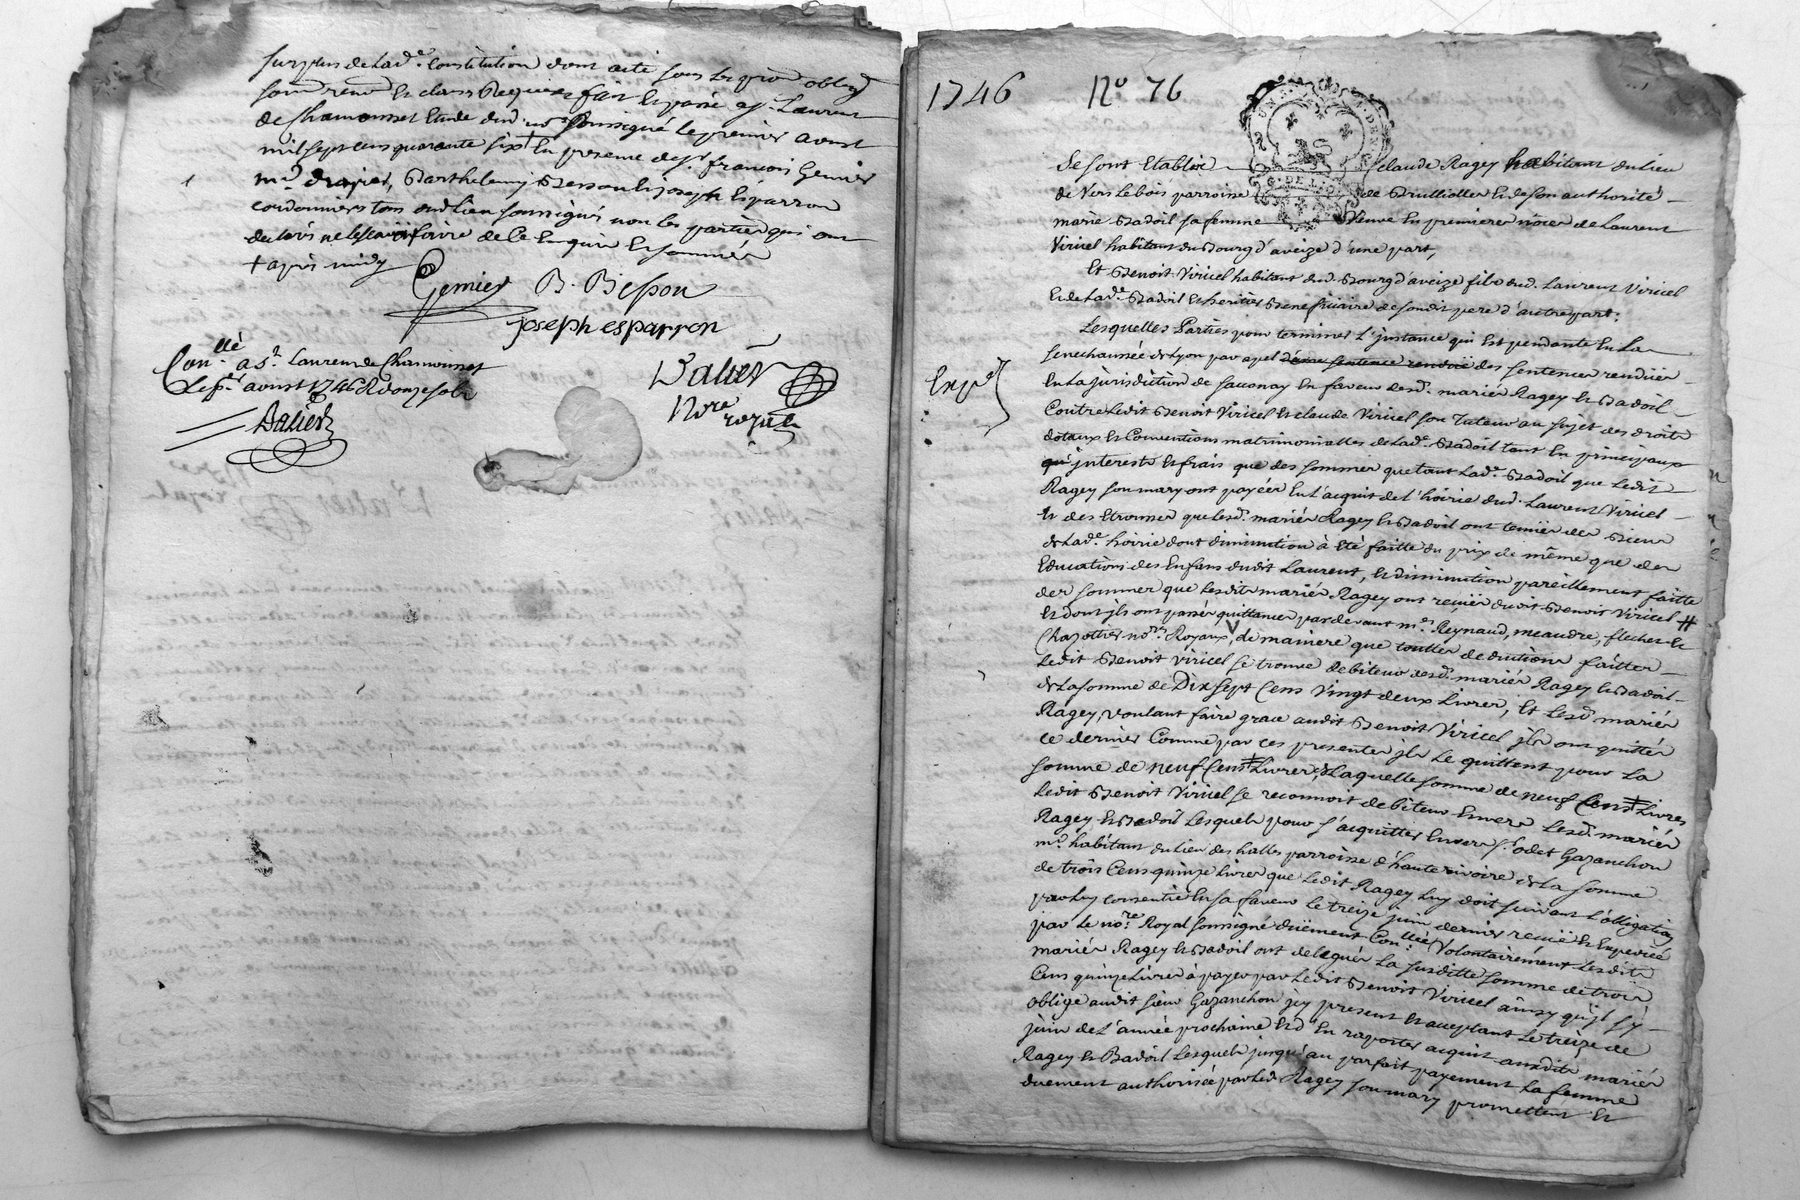 surplus de lad.e Constitution dont acte sous les
soum. renon. et clauses Requises fait et passé a S.t Laurent
de Chamousset Etude dud. no.re soussigné le premier aoust
mil sept cens quarante six + En presence de s.r francois Gemier
m.d drapier, Barthelemy Besson et joseph Esparron
cordonniers tous dud lieu soussignés non les parties qui ont
declaré ne le scavoir faire de ce Enquis et sommés
+ apres midy
Gemier B. Besson
joseph esparron
Con.llé a S.t Laurent de Chamousset
Le p.er aoust 1746 R douze sols
Balier
Balier
No.re royal
1746 No 76
Se sont Etablis Claude Ragey habitant du lieu
de Vers le bois parroisse de Brullioles et de son authorité
marie Badoil sa femme Veuve En premieres nôces de Laurent
Viricel habitant du Bourg d'aveize d'une part,
Et Benoit Viricel habitant dud. Bourg d'aveize fils dud. Laurent Viricel
et de lad.e Badoil et heritier Beneficiaire de sondit pere d'autre part;
Lesquelles Parties pour terminer L'jnstance qui Est pendante En La
senechaussée de Lyon par apel d'une sentence rendüe des sentences rendües
Exp.é
En La jurisdiction de Saconay En faveur desd. mariés Ragey et Badoil
Contre Ledit Benoit Viricel et claude Viricel son Tuteur au sujet des droits
dotaux et Conventions matrimonialles de lad.e Badoil tant En principaux
qu' jnterests et frais que des sommes que tant Lad.e Badoil que Ledit
Ragey son mary ont payées En L'acquit de L'hoirie dud. Laurent Viricel
et des que lesd. mariés Ragey et Badoil ont des Biens
de Lad.e hoirie dont diminution à Eté faitte du prix de même que des
Educations des Enfans dudit Laurent, et diminution pareillement faitte
des sommes que Lesdits mariés Ragey ont reçües dudit Benoit Viricel #
et dont jls ont passé quittances pardevant m.es Reynaud, meaudre, flecher et
Chazottier no.res Royaux, de maniere que touttes deductions faittes
Ledit Benoit Viricel se trouve debiteur desd. mariés Ragey et Badoil
de La somme de Dix sept Cens Vingt deux Livres, Et Lesd. mariés
Ragey voulant faire grace audit Benoit Viricel jls ont quitté
ce dernier Comme par ces presentes jls Le quittent pour La
somme de neuf Cens Livres, de Laquelle somme de neuf Cens Livres
Ledit Benoit Viricel se reconnoit debiteur Envers Lesd. mariés
Ragey et Badoil Lesquels pour s'acquitter Envers s.r odet Gazanchon
m.d habitant du lieu des halles parroisse d'hauterivoire de La somme
de trois Cens quinze Livres que Ledit Ragey Luy doit suivant L'obligation
par Luy consentie En sa faveur Le treize juin dernier reçüe et Expediée
par Le no.re Royal soussigné düement Con.llée Volontairement Lesdits
mariés Ragey et Badoil ont delegué La susditte somme de trois
Cens quinze Livres à payer par Ledit Benoit Viricel ainsy qu'jl s'y
oblige audit sieur Gazanchon jcy present et acceptant Le treize de
juin de L'année prochaine et d'En raporter acquit ausdits mariés
Ragey et Badoil Lesquels jusqu'au parfait payement La femme
duement authorisée par led. Ragey son mary promettent et